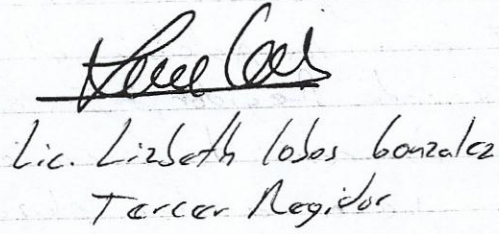 Lic. Lizbeth lobos Gonzalez
Tercer Regidor